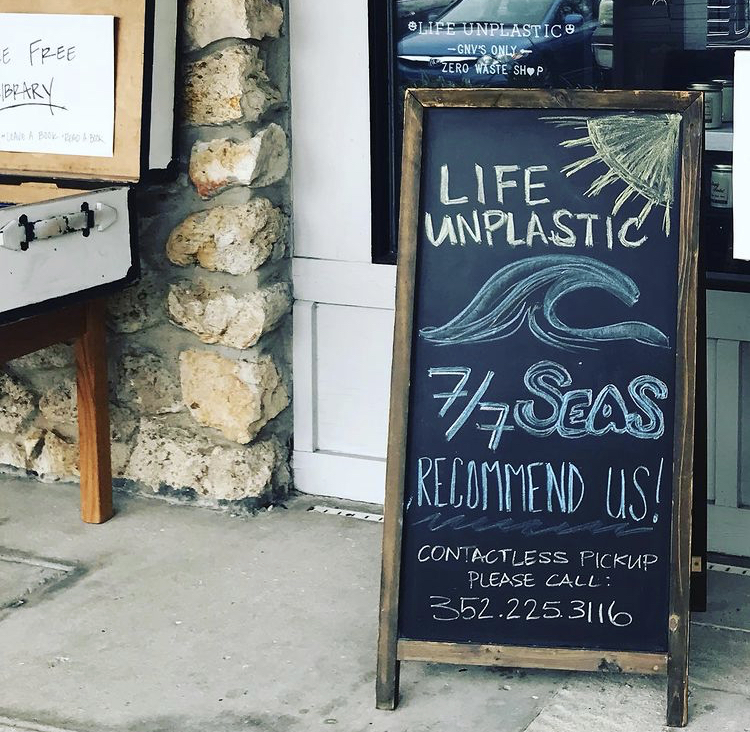 E FREE
IBRARY
LEAVE A BOOK - READ A BOOK
LIFE UNPLASTIC
GNV'S ONLY
ZERO WASTE SHOP
LIFE
UNPLASTIC
7/7 SEAS
RECOMMEND US!
CONTACTLESS PICKUP
PLEASE CALL:
352.225.3116